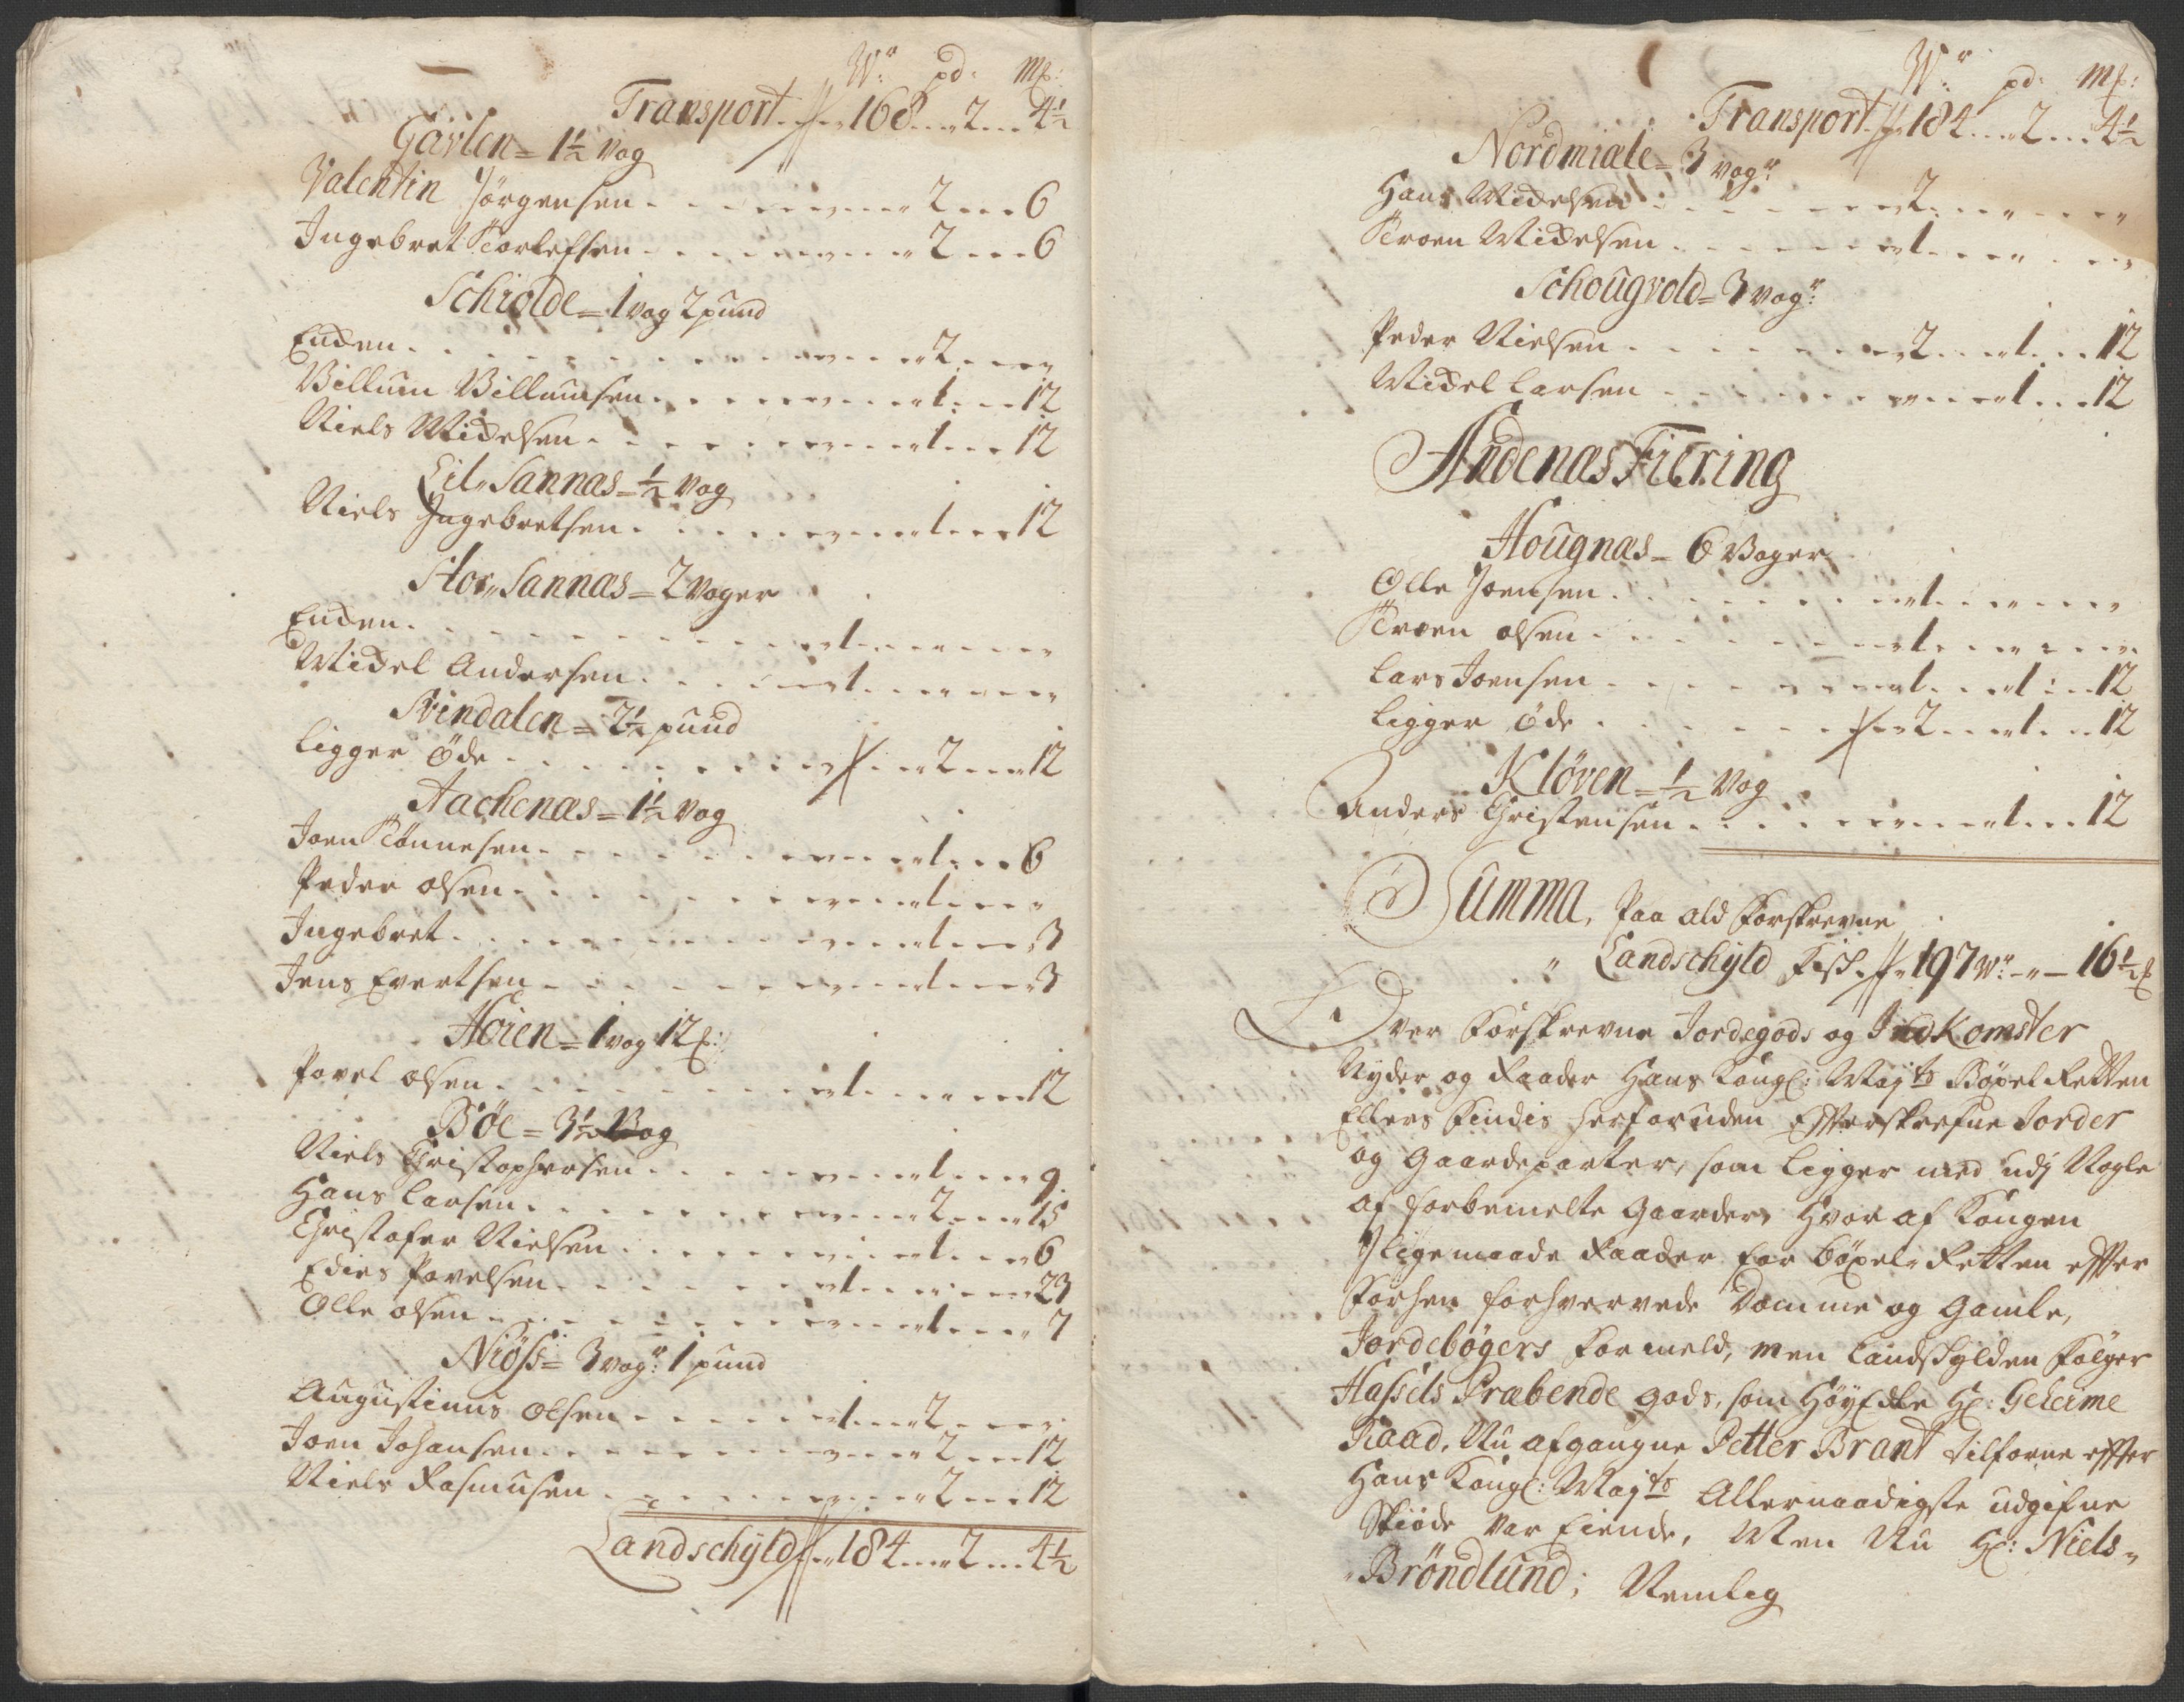 Wr: pd: M℔:
Transport . . 168 . . 2 . . 4½
Gavlen = 1½ Vog
Valentin Jørgensen . . . 2 . . . 6
Ingebret Torlefsen . . . 2 . . . 6
Schiolde = 1 vog 2 pund
Enchen . . . 2 . . . "
Villum Villumsen . . . 1 . . . 12
Niels Michelsen . . . 1 . . . 12
Lil Sannæs = ½ Vog
Niels Ingebretsen . . . 1 . . . 12
Stor Sannæs = 2 Voger
Enchen . . . 1 . . . " . . . "
Michel Andersen . . . 1 . . . " . . . "
Svindalen = 2½ pund
Ligger Øde . . . 2 . . . 12
Aachenæs = 1½ Vog
Joen Tønnesen . . . 1 . . . 6
Peder Olsen . . . 1 . . . "
Ingebret . . . 1 . . . 3
Jens Evertsen . . . 1 . . . 3
Høien = 1 vog 12 ℔:
Povel Olsen . . . 1 . . . " . . . 12
Bøe = 3½ Vog
Niels Christophersen . . . 1 . . . 9
Hans Larsen . . . 2 . . . 15
Christofer Nielsen . . . 1 . . . 6
Edies Povelsen . . . 1 . . . " . . . 23
Olle Olsen . . . 1 . . . 7
Niøss = 3 vogr: 1 pund
Augustinus Olsen . . . 1 . . . 2 . . . "
Joen Johansen . . . 2 . . . 12
Niels Rasmusen . . . 2 . . . 12
Landschyld . . 184 . . 2 . . 4½
Wr: pd: M℔:
Transport . . 184 . . 2 . . 4½
Nordmiæle = 3 vogr:
Hans Michelsen . . . 2 . . . " . . . "
Troen Michelsen . . . 1 . . . " . . . "
Schougvold = 3 vogr:
Peder Nielsen . . . 2 . . . 1 . . . 12
Michel Larsen . . . 1 . . . 12
Andenæs Fiering
Hougnæs = 6 Voger
Olle Joensen . . . 1 . . . " . . . "
Troen Olsen . . . 1 . . . " . . . "
Lars Joensen . . . 1 . . . 1 . . . 12
Ligger Øde . . . 2 . . . 1 . . . 12
Kløven = ½ Vog
Anders Christensen . . . 1 . . . 12
Summa, Paa ald Forskrevne
Landschyld Fisch . . 197 Wr: - " - 16½ ℔
Over Forskrevne Jordegods og Indkomster
Nyder og Raader Hans Kongl: Mayts Bøxel Retten
Ellers Findis herforuden Efterskrefne Jorder
og Gaardeparter, som ligger med udj Nogle
af forbemelte Gaarder, Hvor af Kongen
J ligemaade Raader for bøxel-Retten efter
Forhen forhvervede Domme og Gamle,
Jordebøgers Formeld, men Landschylden Følger
Hassels Præbende gods, som HøyEdle Hr: Geheime
Raad, Nu afgangne Petter Brant tilforne efter
Hans Kongl: Mayts Allernaadigste udgifne
Skiøde var Eiende, Men Nu Hr: Niels
Brøndlund; Nemlig